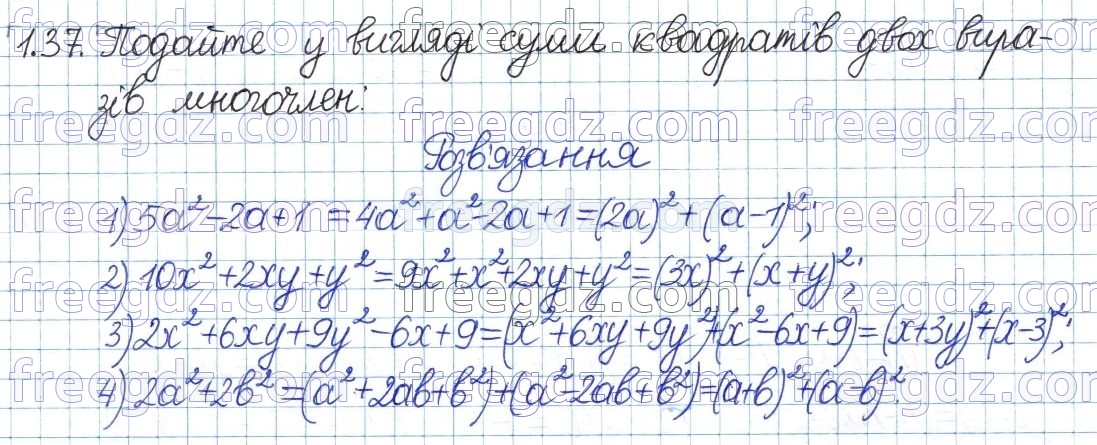 1.37. Подайте у вигляді суми квадратів двох вира-
зів многочлен:
Розв'язання
1) 5a² - 2a + 1 = 4a² + a² - 2a + 1 = (2a)² + (a - 1)²;
2) 10x² + 2xy + y² = 9x² + x² + 2xy + y² = (3x)² + (x + y)²;
3) 2x² + 6xy + 9y² - 6x + 9 = (x² + 6xy + 9y²) + (x² - 6x + 9) = (x + 3y)² + (x - 3)²;
4) 2a² + 2b² = (a² + 2ab + b²) + (a² - 2ab + b²) = (a + b)² + (a - b)².